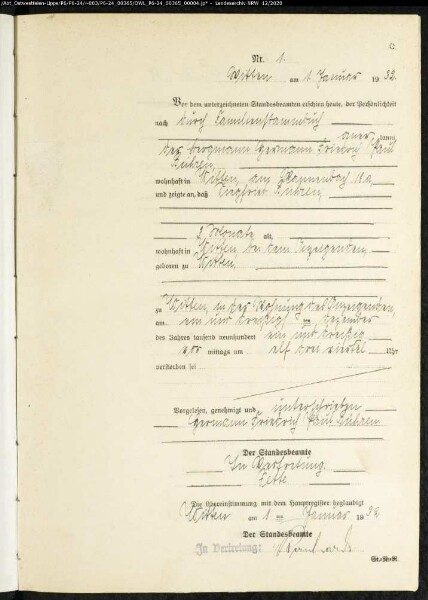 /Abt_Ostwestfalen-Lippe/P6/P6-24/~003/P6-24_00365/OWL_P6-24_00365_00004.jp* - Landesarchiv NRW 12/2020
C.
Nr. 1.
Witten am 1. Januar 1932.
Vor dem unterzeichneten Standesbeamten erschien heute, der Persönlichkeit
nach durch Familienstammbuch
aner kannt,
der Bergmann Hermann Friedrich Paul
wohnhaft in Witten, am
und zeigte an, daß Siegfried
2 Monate alt,
wohnhaft in Witten bei dem Anzeigenden,
geboren zu Witten,
zu Witten, in der Wohnung des Anzeigenden,
am ein und dreißigsten Dezember
des Jahres tausend neunhundert ein und dreißig
vor mittags um elf drei viertel Uhr
verstorben sei
Vorgelesen, genehmigt und unterschrieben
Hermann Friedrich Paul
Der Standesbeamte
In Vertretung
Die Übereinstimmung mit dem Hauptregister beglaubigt
Witten am 1. Januar 1932
Der Standesbeamte
In Vertretung: